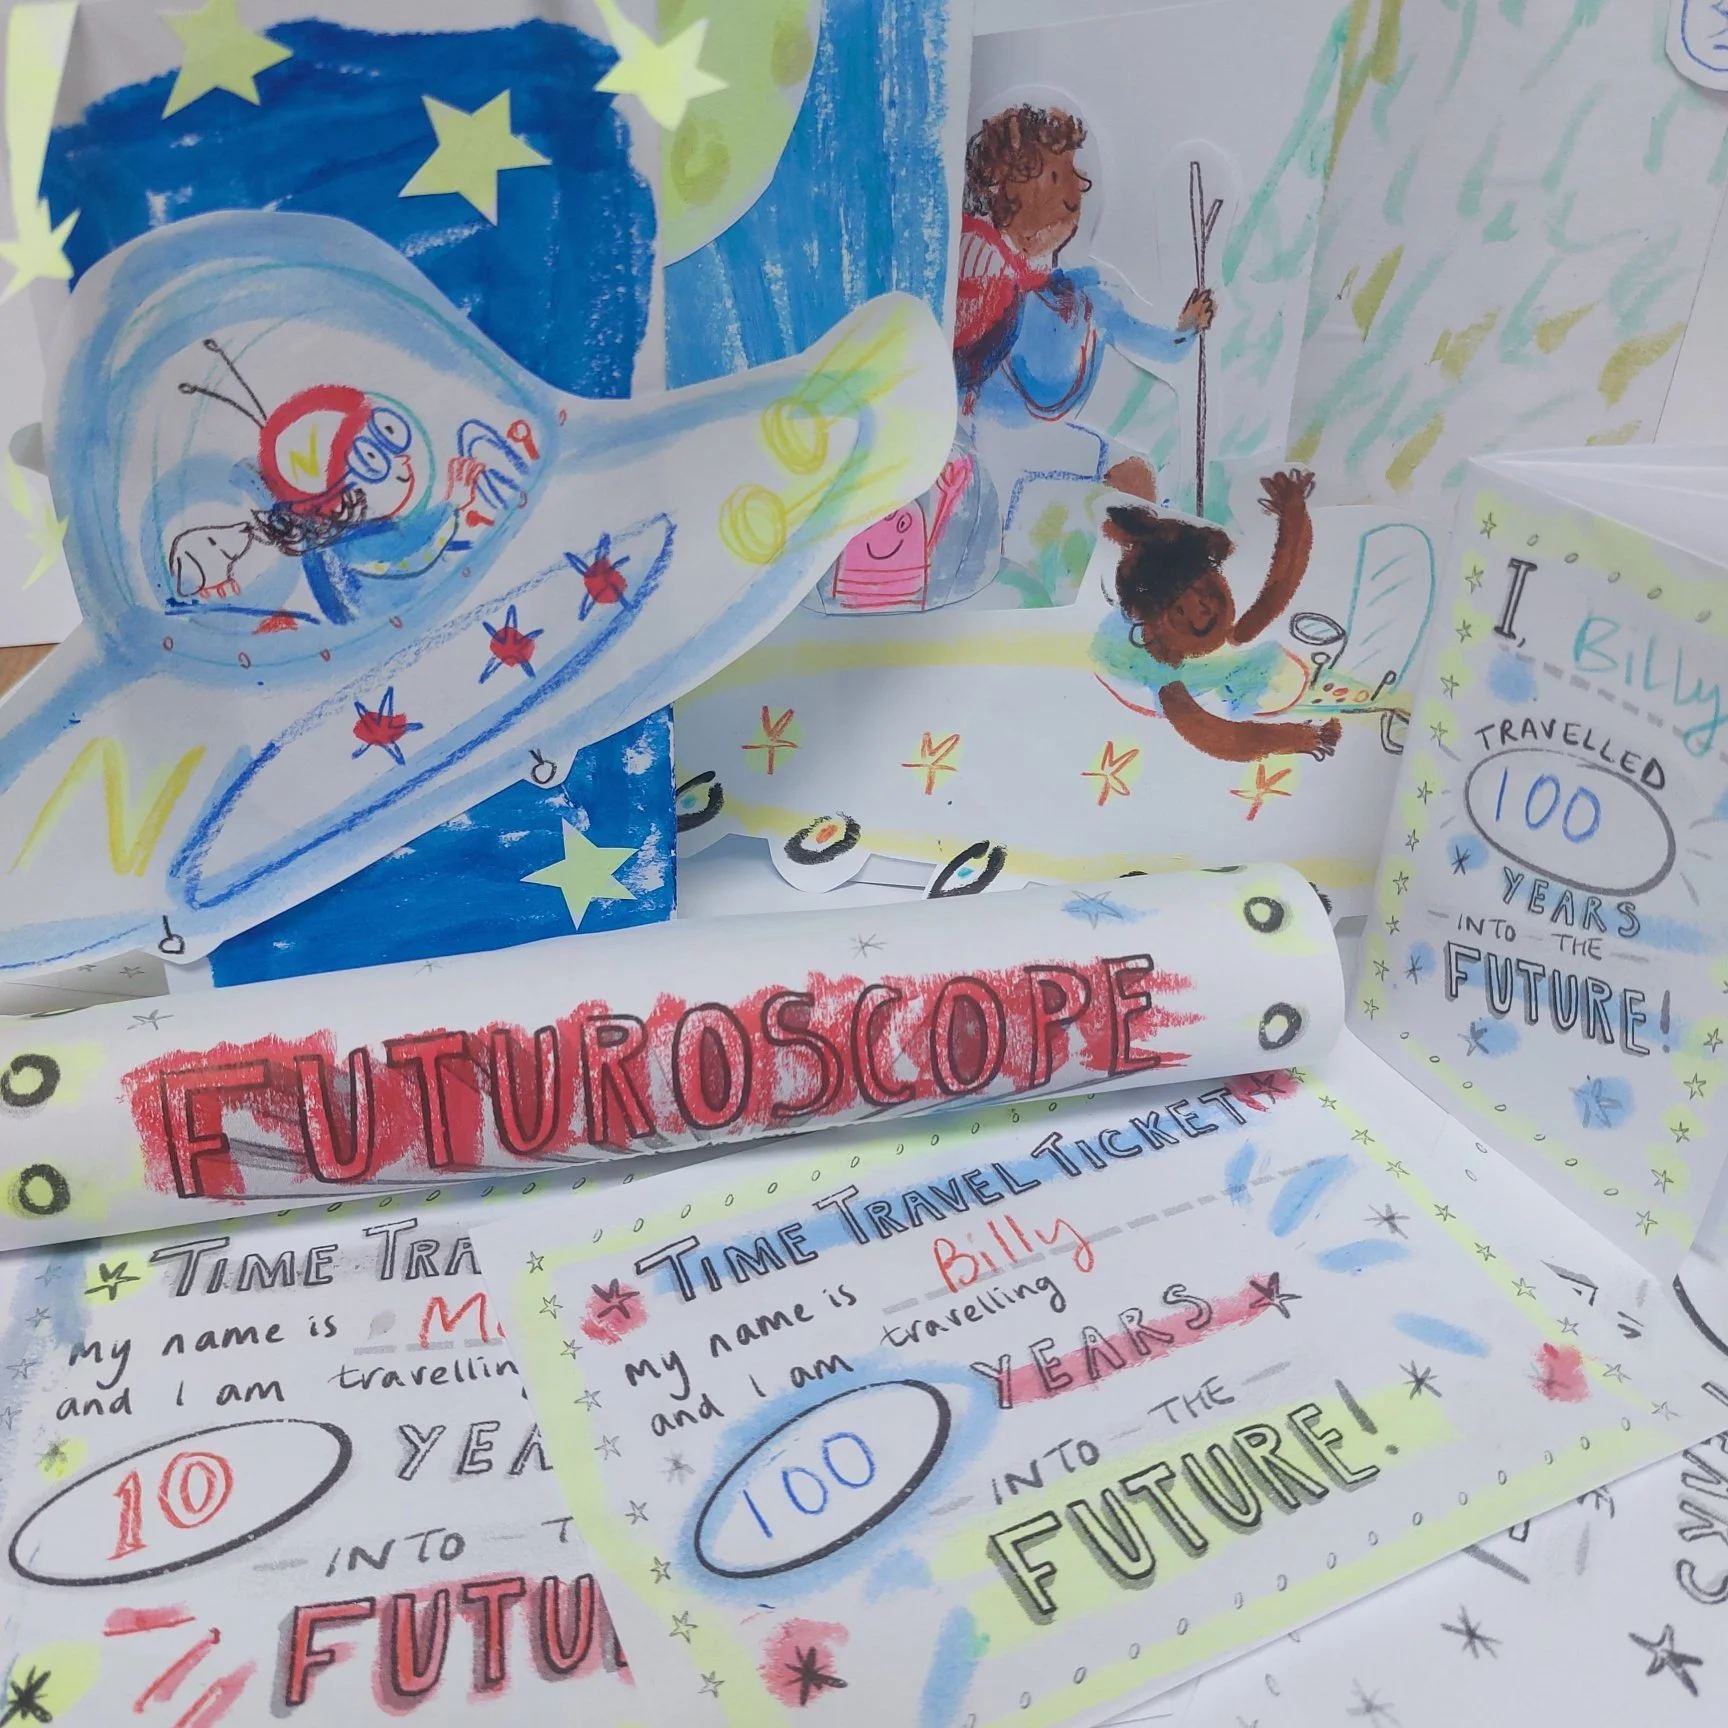 N
N
I, Billy
TRAVELLED
100
YEARS
INTO THE
FUTURE!
FUTUROSCOPE
TIME TRAVEL TICKET
My name is Billy
and I am travelling
100 YEARS
INTO THE
FUTURE!
TIME TRA
My name is M
and I am travellin
10 YEA
INTO T
FUTU